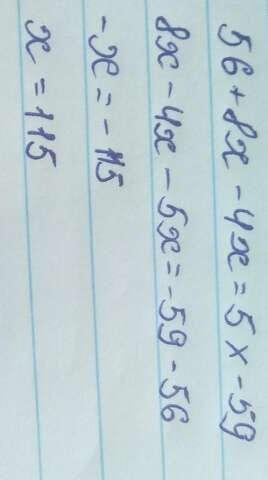 56 + 8x - 4x = 5x - 59
8x - 4x - 5x = -59 - 56
-x = -115
x = 115